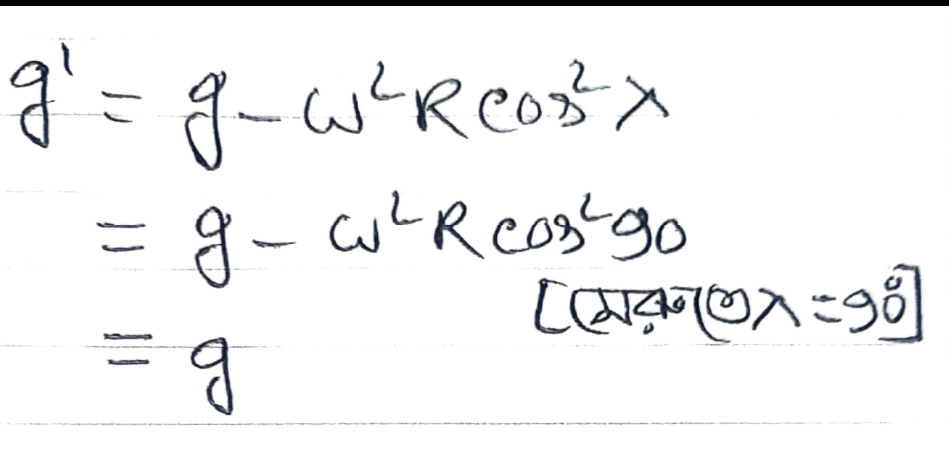 g' = g - ω²R cos²λ
= g - ω²R cos²90
[মেরুতে λ = 90°]
= g